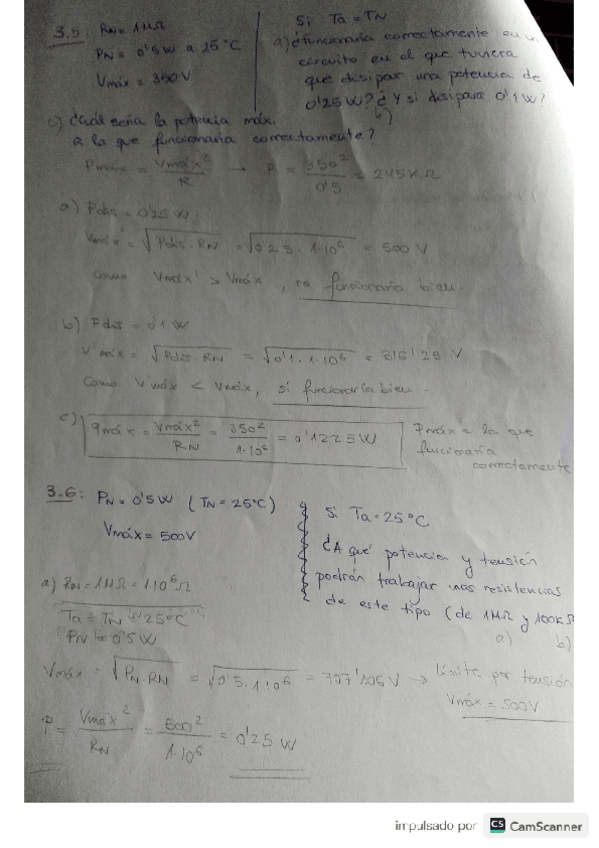 3.5. RN = 1MΩ
PN = 0'5W a 25°C
Vmáx = 350V
Si Ta = TN
a) ¿funcionaría correctamente en un
circuito en el que tuviera
que disipar una potencia de
0'25W? ¿Y si disipara 0'1W?
b)
c) ¿Cuál sería la potencia máx.
a la que funcionaría correctamente?
Pmáx = Vmáx² / R → R = 350² / 0'5 = 245KΩ
a) Pdis = 0'25 W.
Vmáx' = √Pdis·RN = √0'25·1·10⁶ = 500 V
Como Vmáx' > Vmáx, no funcionaría bien.
b) Pdis = 0'1 W
V'máx = √Pdis·RN = √0'1·1·10⁶ = 316'23 V
Como V'máx < Vmáx, sí funcionaría bien.
c) Pmáx = Vmáx² / RN = 350² / 1·10⁶ = 0'1225W
Pmáx a la que
funcionaría
correctamente
3.6: PN = 0'5W (TN = 25°C)
Vmáx = 500V
Si Ta = 25°C
¿A qué potencia y tensión
podrán trabajar unas resistencias
de este tipo (de 1MΩ y 100kΩ
a) b)
a) RN = 1MΩ = 1·10⁶Ω
Ta = TN = 25°C
PN = 0'5W
Vmáx = √PN·RN = √0'5·1·10⁶ = 707'106V → límite por tensión
Vmáx = 500V
P = Vmáx² / RN = 500² / 1·10⁶ = 0'25 W
impulsado por CS CamScanner